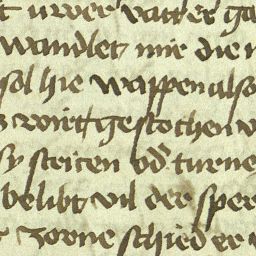 uwer vatter ga
wandlet mir die
sol hie wappen also
wirt gestochen
sy striten od turne
belibt vil der sper
zorne schied er